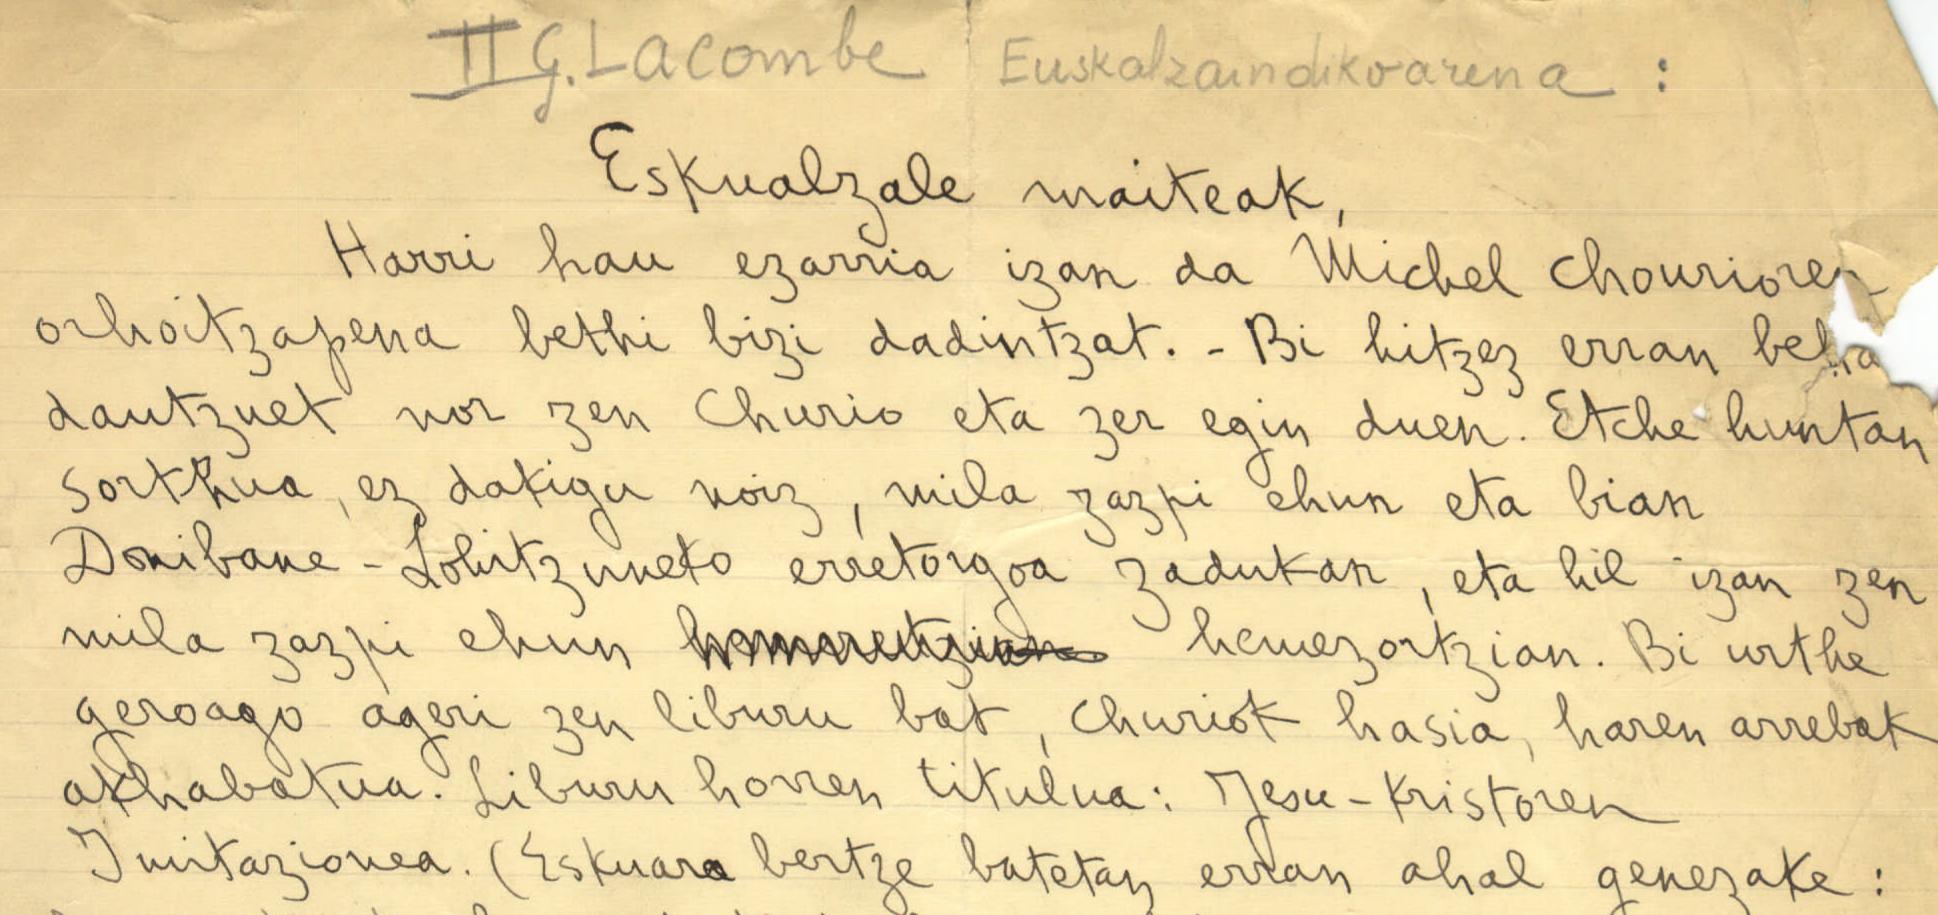 II G. Lacombe Euskalzaindikoarena :
Eskualzale maiteak,
Harri hau ezarria izan da Michel Chourioren
orhoitzapena bethi bizi dadintzat. - Bi hitzez erran behar
dautzuet nor zen Churio eta zer egin duen. Etche huntan
sorthua, ez dakigu noiz, mila zazpi ehun eta bian
Donibane - Lohitzuneko erretorgoa zadukan, eta hil izan zen
mila zazpi ehun hemezortzian. Bi urthe
geroago ageri zen liburu bat, Churiok hasia, haren arrebak
akhabatua. Liburu horren titulua: Jesu-Kristoren
Imitazionea. (Eskuara bertze batetan erran ahal genezake :